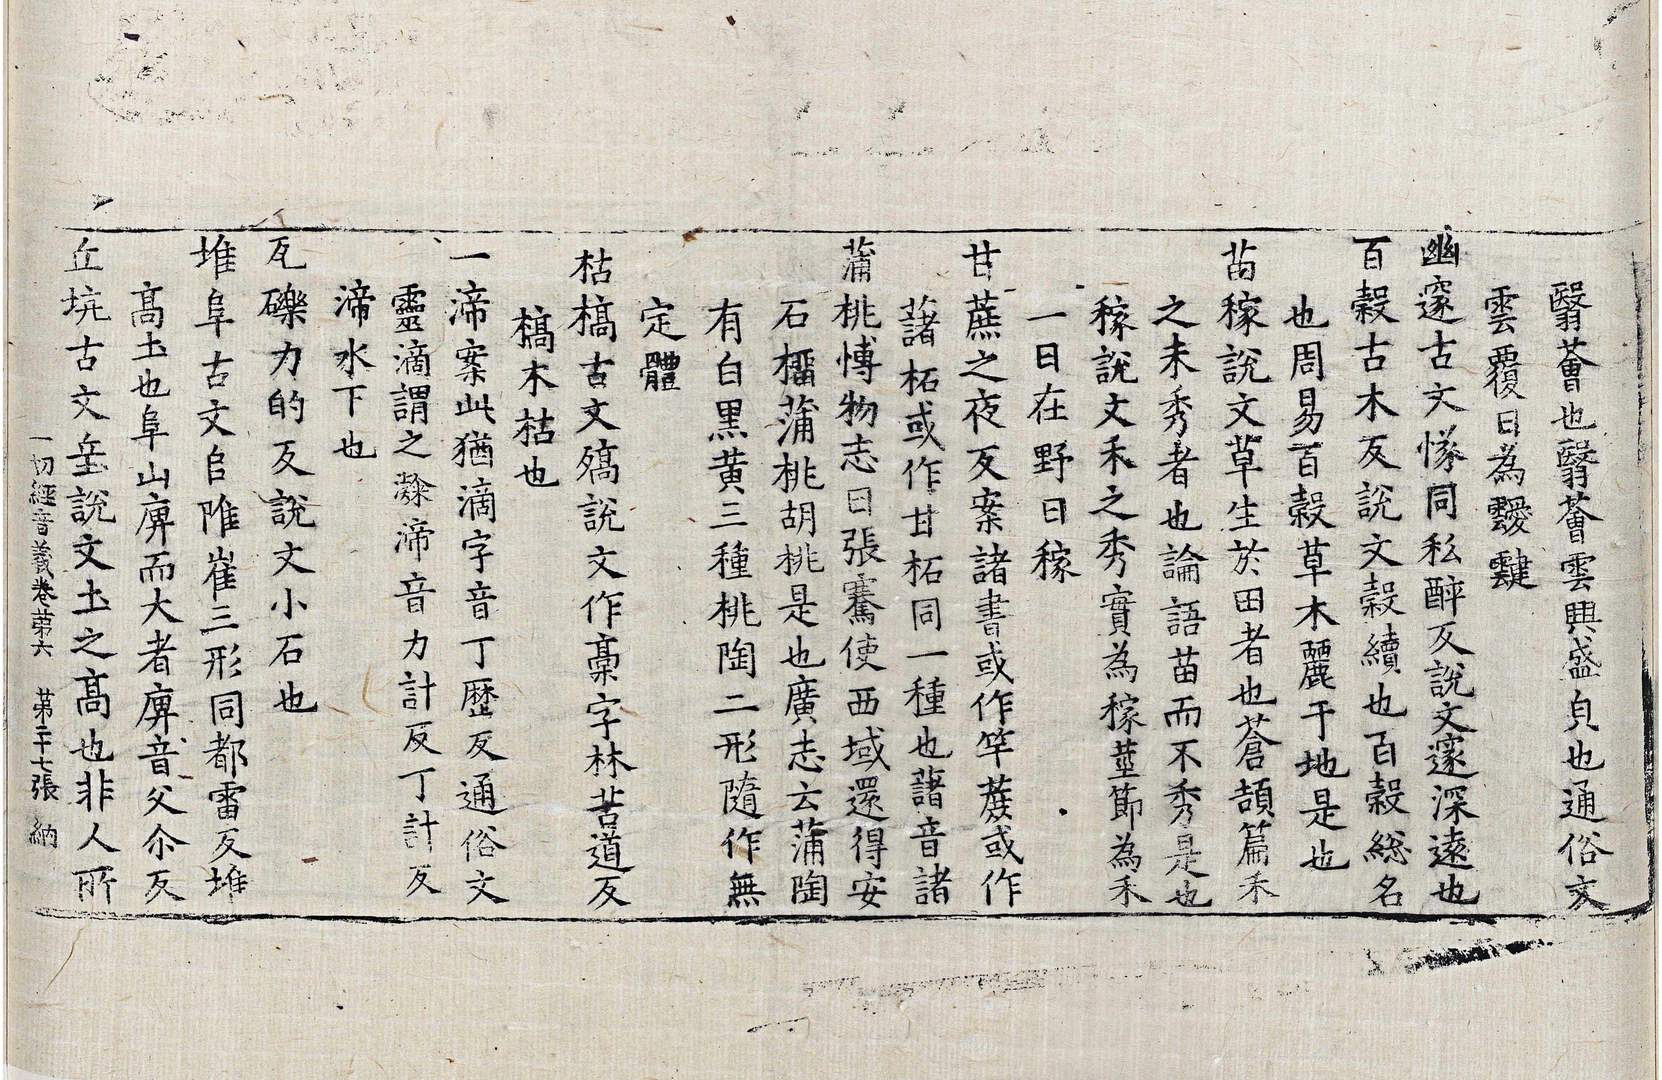 翳薈也翳薈雲興盛皃也通俗文
雲覆日為靉靆
幽邃古文㒸同私醉反說文邃深遠也
百穀古木反說文穀續也百穀総名
也周易百穀草木麗于地是也
苗稼說文草生於田者也蒼頡篇禾
之未秀者也論語苗而不秀是也
稼說文禾之秀實為稼莖節為禾
一曰在野曰稼
甘蔗之夜反案諸書或作竿蔗或作
藷柘或作甘柘同一種也藷音諸
蒲桃愽物志曰張騫使西域還得安
石榴蒲桃胡桃是也廣志云蒲陶
有白黑黄三種桃陶二形隨作無
定體
枯槁古文㱿說文作稾字林苦道反
槁木枯也
一渧案此猶滴字音丁歷反通俗文
靈滴謂之渧音力計反丁計反
渧水下也
瓦礫力的反說文小石也
堆阜古文𠂤陮崔三形同都雷反堆
髙土也阜山庳而大者庳音父尒反
丘坑古文㘳說文土之髙也非人所
一切經音義卷苐六 苐二十七張 納